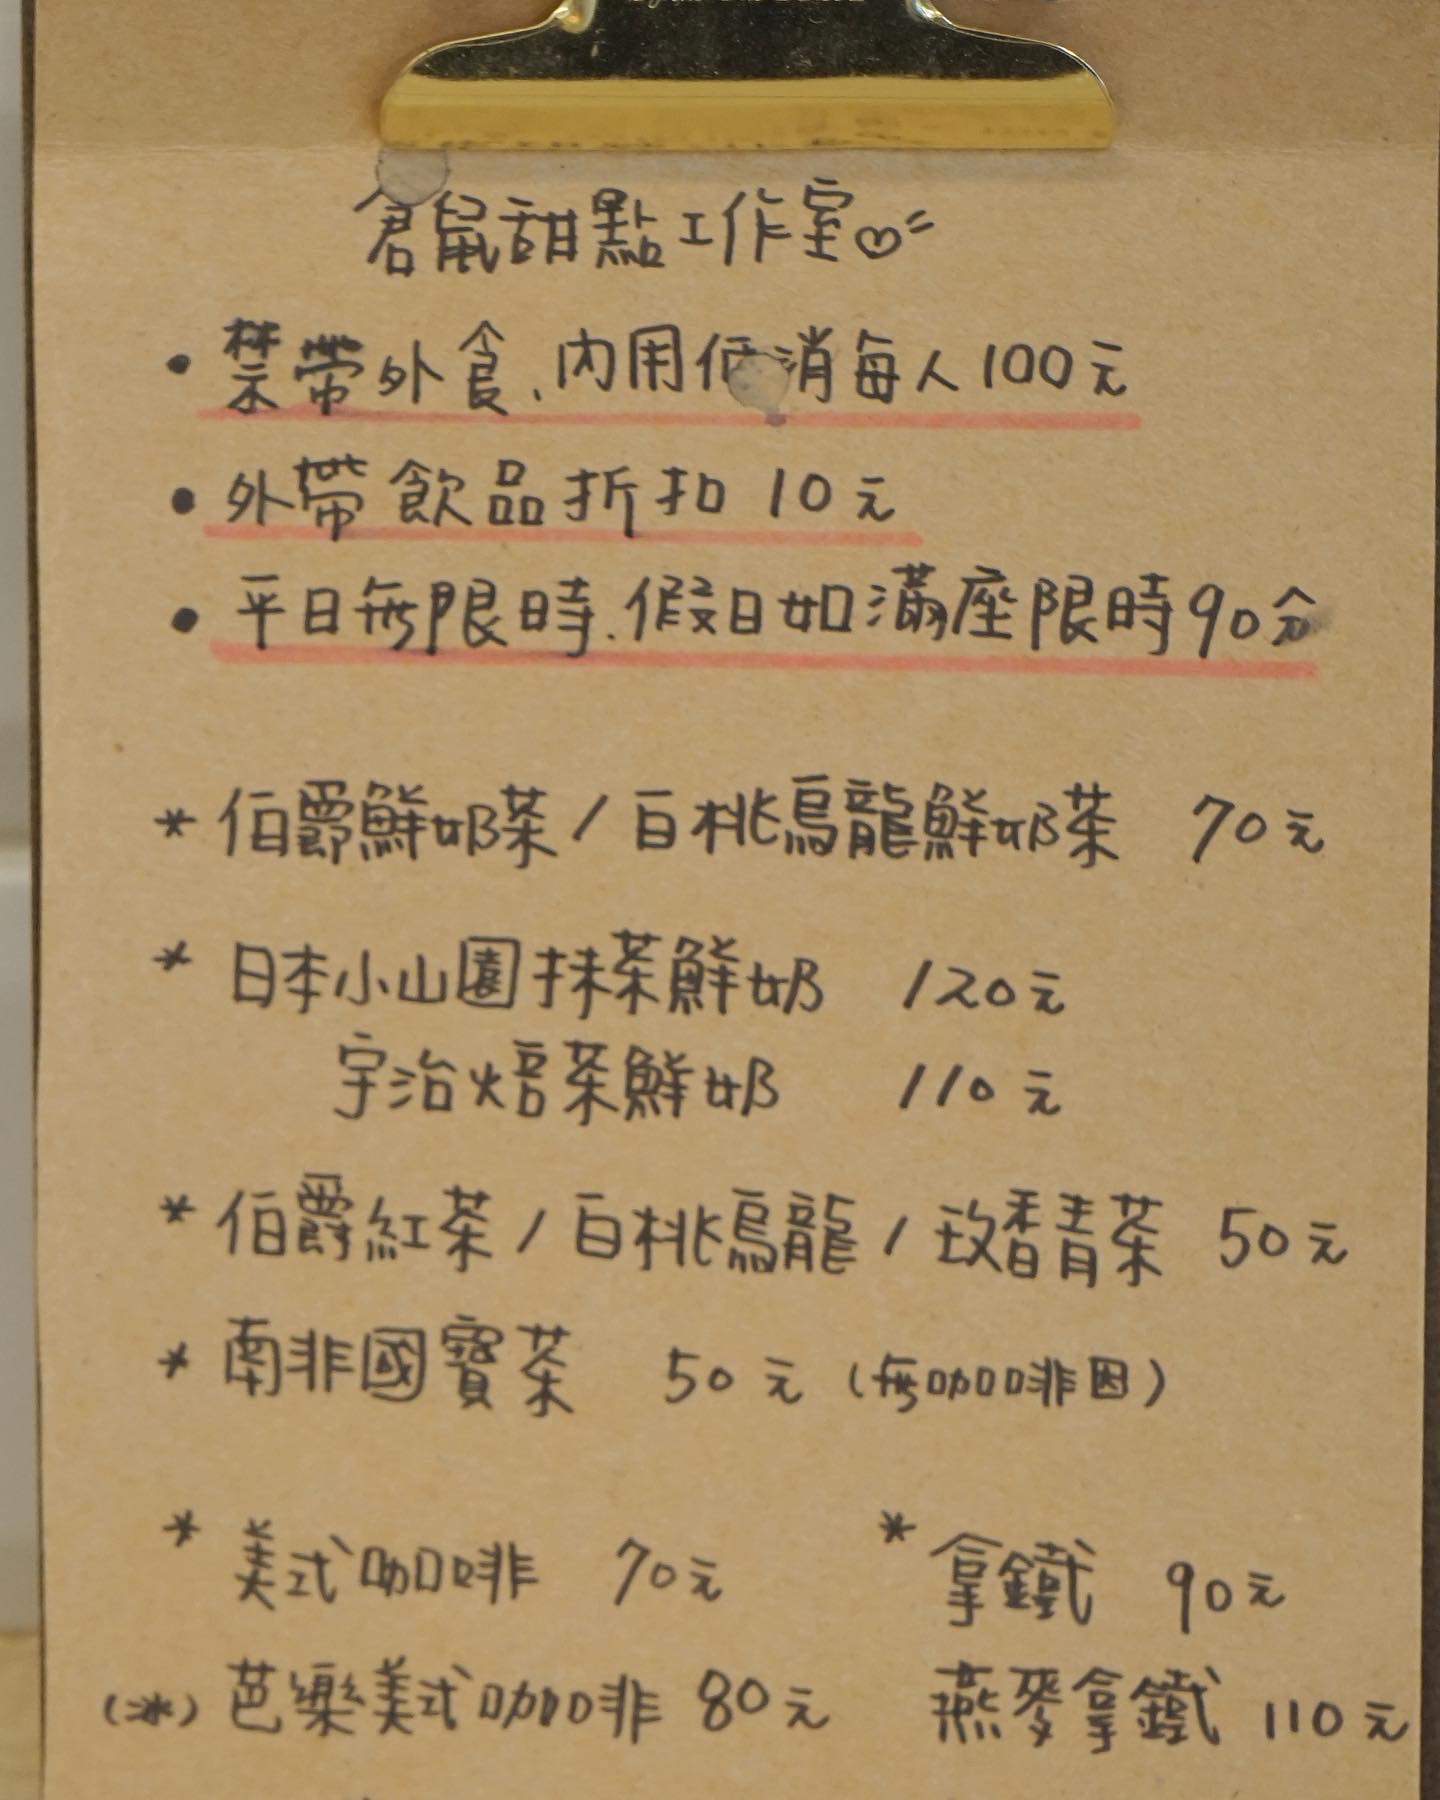 倉鼠甜點工作室
• 禁帶外食、內用低消每人100元
• 外帶飲品折扣 10元
• 平日無限時、假日如滿座限時90分
* 伯爵鮮奶茶 / 白桃烏龍鮮奶茶 70元
* 日本小山園抹茶鮮奶 120元
宇治焙茶鮮奶 110元
* 伯爵紅茶 / 白桃烏龍 / 玫香青茶 50元
* 南非國寶茶 50元 (無咖啡因)
* 美式咖啡 70元 * 拿鐵 90元
(冰) 芭樂美式咖啡 80元 燕麥拿鐵 110元